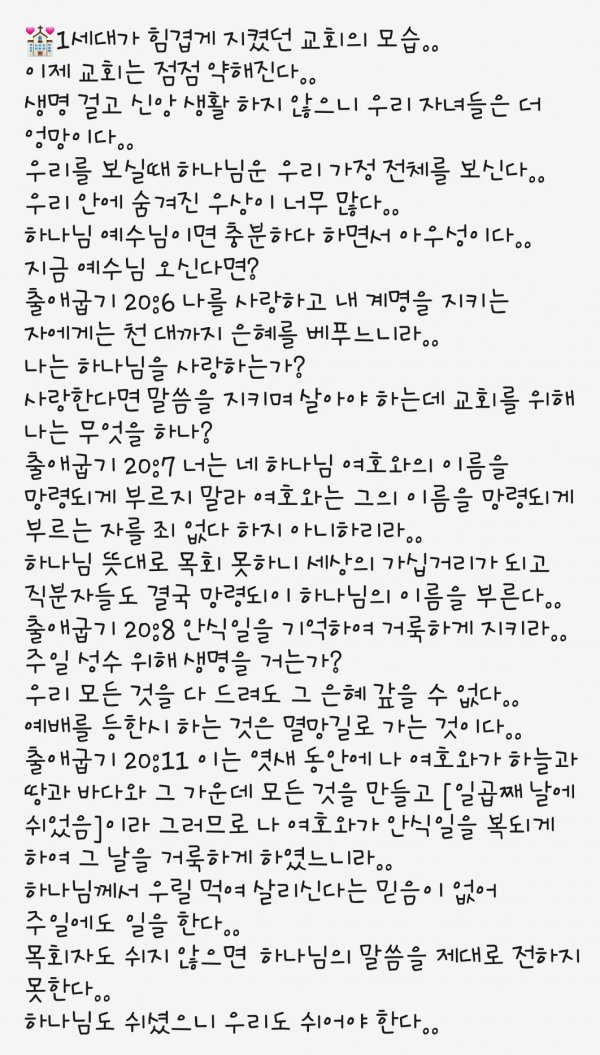 💒1세대가 힘겹게 지켰던 교회의 모습..
이제 교회는 점점 약해진다..
생명 걸고 신앙 생활 하지 않으니 우리 자녀들은 더
엉망이다..
우리를 보실때 하나님운 우리 가정 전체를 보신다..
우리 안에 숨겨진 우상이 너무 많다..
하나님 예수님이면 충분하다 하면서 아우성이다..
지금 예수님 오신다면?
출애굽기 20:6 나를 사랑하고 내 계명을 지키는
자에게는 천 대까지 은혜를 베푸느니라..
나는 하나님을 사랑하는가?
사랑한다면 말씀을 지키며 살아야 하는데 교회를 위해
나는 무엇을 하나?
출애굽기 20:7 너는 네 하나님 여호와의 이름을
망령되게 부르지 말라 여호와는 그의 이름을 망령되게
부르는 자를 죄 없다 하지 아니하리라..
하나님 뜻대로 목회 못하니 세상의 가십거리가 되고
직분자들도 결국 망령되이 하나님의 이름을 부른다..
출애굽기 20:8 안식일을 기억하여 거룩하게 지키라..
주일 성수 위해 생명을 거는가?
우리 모든 것을 다 드려도 그 은혜 갚을 수 없다..
예배를 등한시 하는 것은 멸망길로 가는 것이다..
출애굽기 20:11 이는 엿새 동안에 나 여호와가 하늘과
땅과 바다와 그 가운데 모든 것을 만들고 [일곱째 날에
쉬었음]이라 그러므로 나 여호와가 안식일을 복되게
하여 그 날을 거룩하게 하였느니라..
하나님께서 우릴 먹여 살리신다는 믿음이 없어
주일에도 일을 한다..
목회자도 쉬지 않으면 하나님의 말씀을 제대로 전하지
못한다..
하나님도 쉬셨으니 우리도 쉬어야 한다..